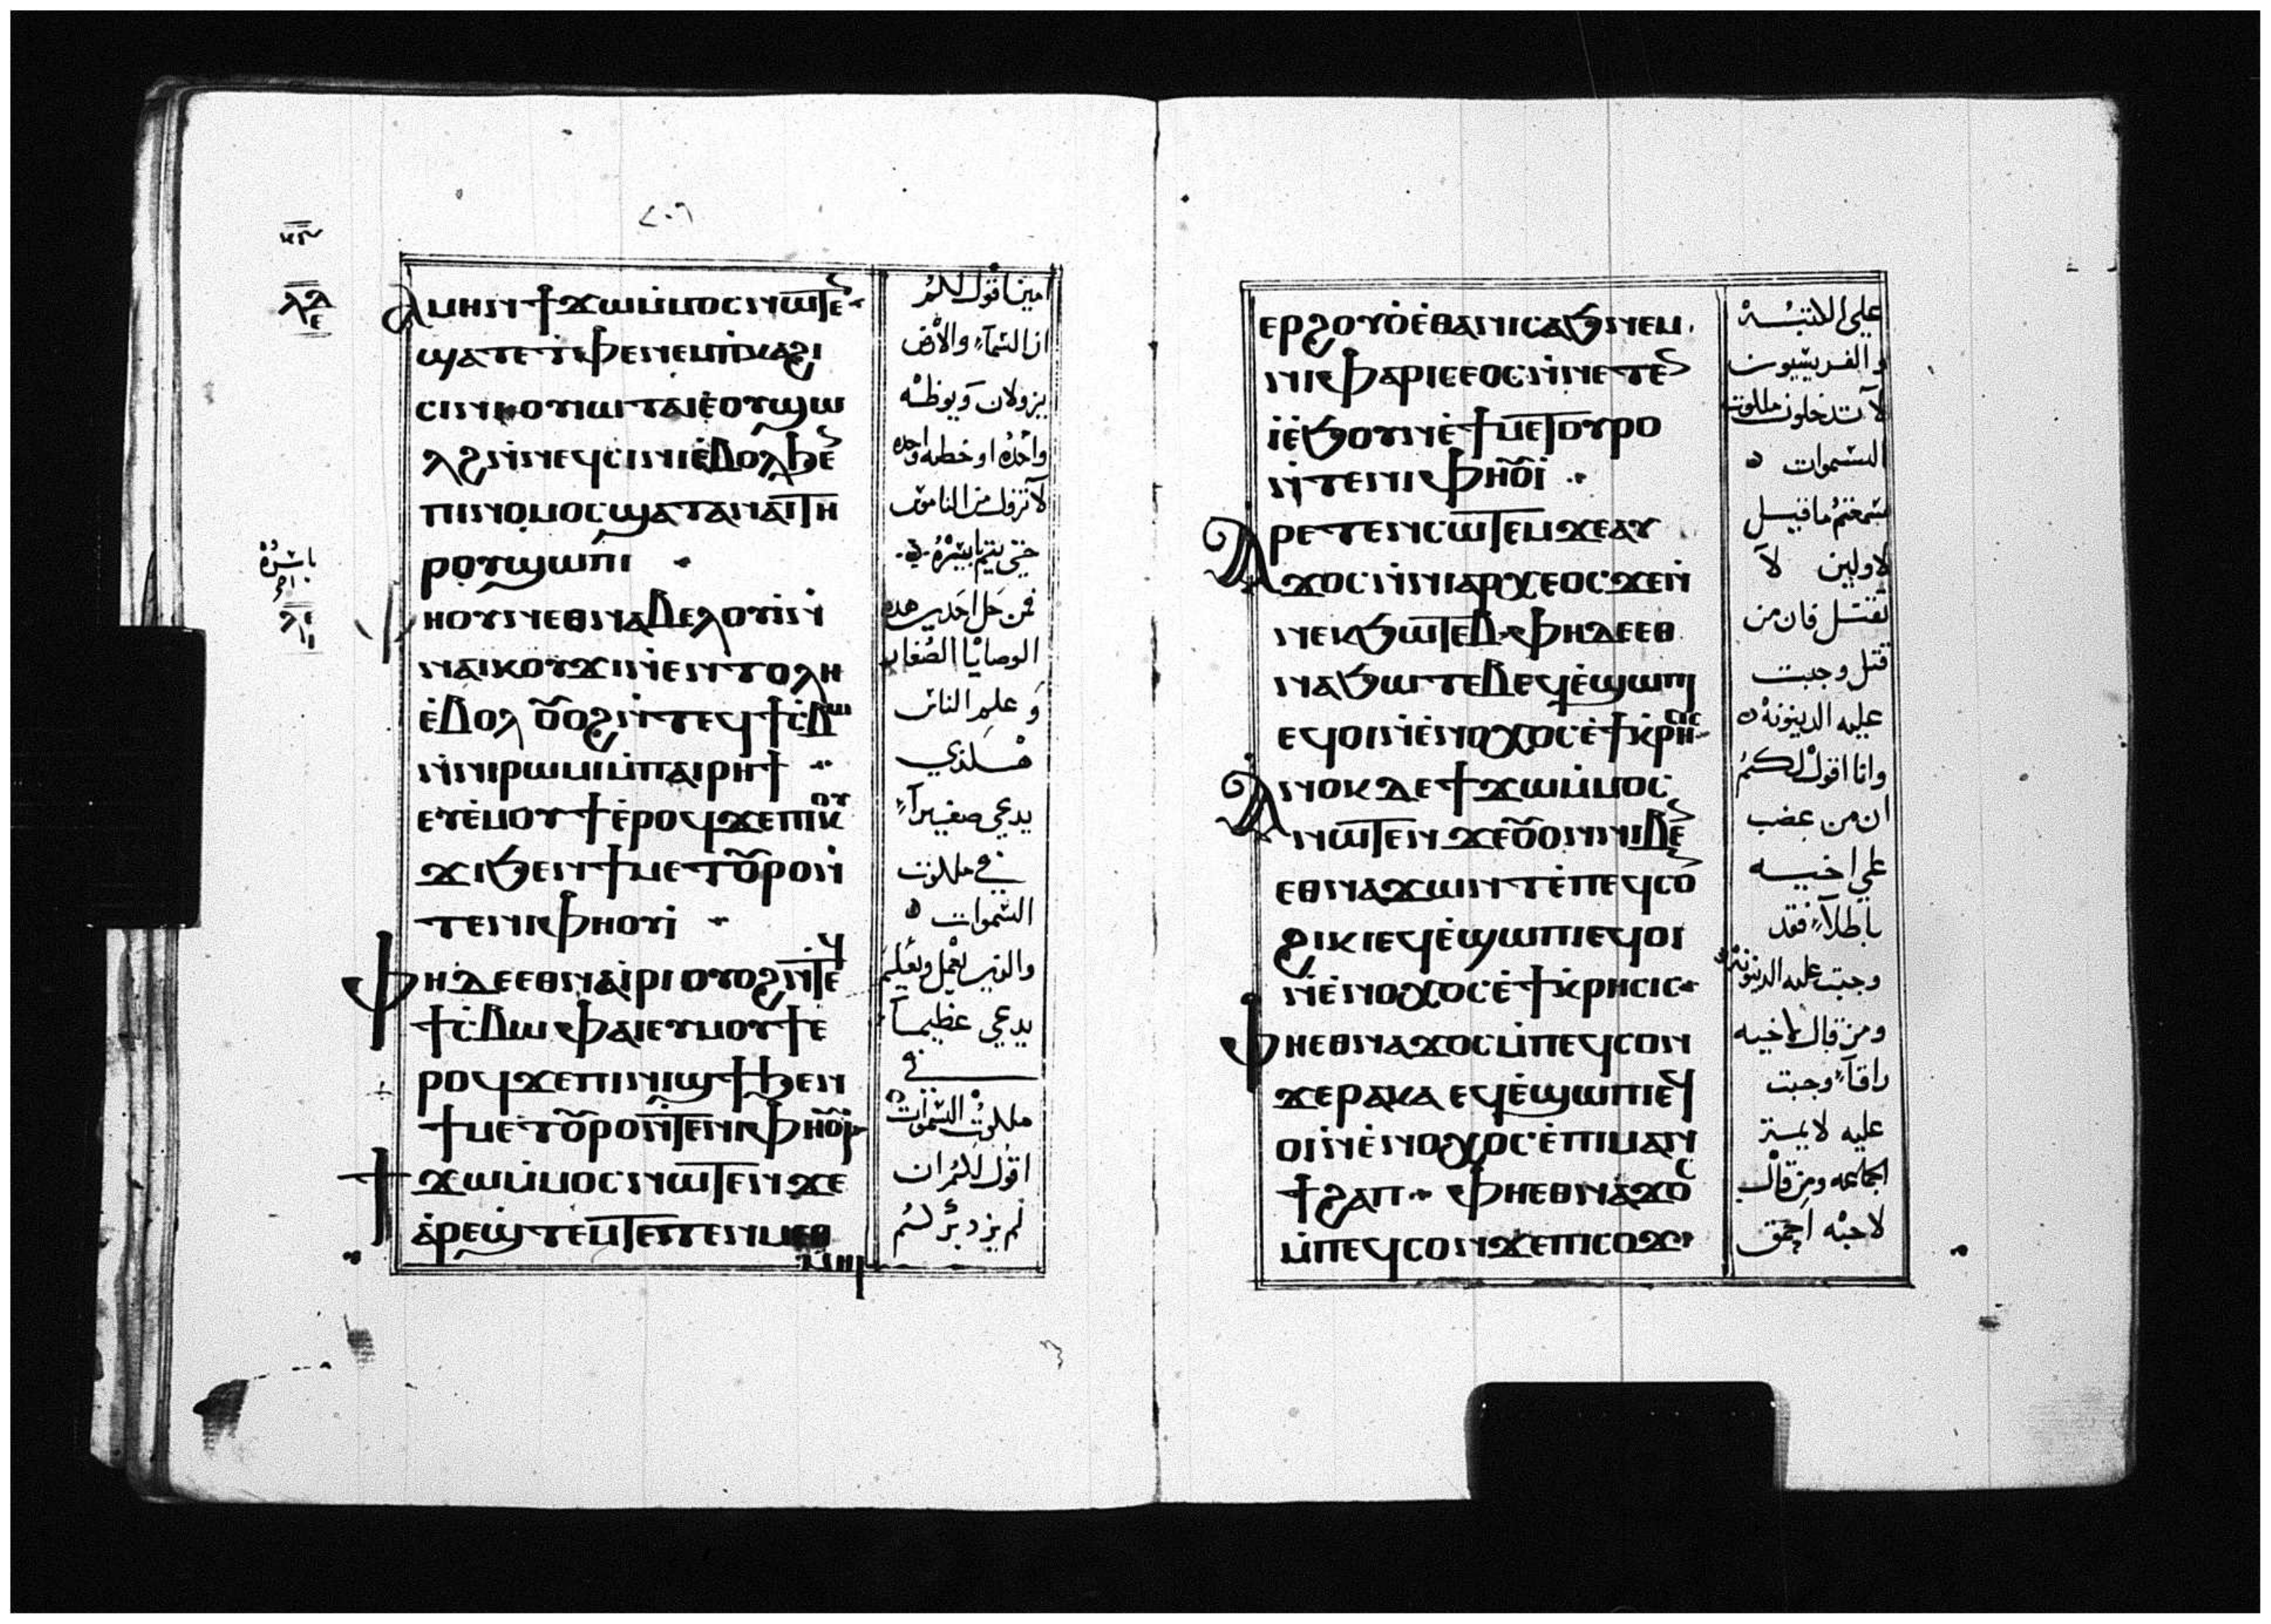 ⲁⲙⲏⲛ ϯϫⲱⲙ̇ⲙⲟⲥ ⲛⲱⲧⲉ
ϣⲁⲧⲉ ⲧⲫⲉ ⲛⲉⲙ ⲡ̇ⲕⲁϩⲓ
ⲥⲓⲛⲓ ⲟⲩⲓⲱⲧⲁ ⲓⲉ̇ ⲟⲩϣⲱ
ⲗϩ ⲛ̇ⲛⲉϥⲥⲓⲛⲓ ⲉ̇ⲃⲟⲗ ϧⲉ
ⲡⲓⲛⲟⲙⲟⲥ ϣⲁⲧⲁⲛⲁⲓ ⲧⲏ
ⲣⲟⲩ ϣⲱⲡⲓ
ⲫⲏ ⲟⲩⲛ ⲉⲑⲛⲁⲃⲉⲗ ⲟⲩⲓ ⲛ̇
ⲛⲁⲓⲕⲟⲩϫⲓ ⲛ̇ⲉⲛⲧⲟⲗⲏ
ⲉ̇ⲃⲟⲗ ⲟⲩⲟϩ ⲛ̇ⲧⲉϥϯⲥ̇ⲃⲱ
ⲛ̇ⲛⲓⲣⲱⲙⲓ ⲙ̇ⲡⲁⲓⲣⲏϯ
ⲉⲩⲉ̇ⲙⲟⲩϯ ⲉ̇ⲣⲟϥ ϫⲉ ⲡⲓⲕⲟⲩ
ϫⲓ ϧⲉⲛ ϯⲙⲉⲧⲟⲩⲣⲟ ⲛ̇
ⲧⲉ ⲛⲓⲫⲏⲟⲩⲓ
ⲫⲏ ⲇⲉ ⲉⲑⲛⲁⲓ̇ⲣⲓ ⲟⲩⲟϩ ⲛ̇ⲧⲉϥ
ϯⲥ̇ⲃⲱ ⲫⲁⲓ ⲉⲩⲙⲟⲩϯ ⲉ̇
ⲣⲟϥ ϫⲉ ⲡⲓⲛⲓϣϯ ϧⲉⲛ
ϯⲙⲉⲧⲟⲩⲣⲟ ⲛ̇ⲧⲉ ⲛⲓⲫⲏⲟⲩⲓ
ϯϫⲱⲙ̇ⲙⲟⲥ ⲛⲱⲧⲉⲛ ϫⲉ
ⲁ̇ⲣⲉϣⲧⲉⲙ ⲧⲉⲧⲉⲛⲙⲉⲑ
ⲙⲏⲓ
امين اقول لكم
ان السماء والارض
يزولان ويوطه
واحده او خطه واحده
لا تزول من الناموس
حتى يتم باسره
فمن حل احدى هده
الوصايا الصغار
وعلم الناس
هكذي
يدعي صغيراً
في ملكوت
السموات
والذي يعمل ويعلم
يدعي عظيماً
في
ملكوت السموات
اقول لكم ان
لم يزد بركم
ⲉⲣϩⲟⲩⲟ̇ ⲉ̇ⲑⲁ ⲛⲓⲥⲁϧ ⲛⲉⲙ
ⲛⲓⲫⲁⲣⲓⲥⲉⲟⲥ ⲛ̇ⲛⲉⲧⲉ
ⲓ̇ ⲉ̇ϧⲟⲩⲛ ⲉ̇ϯⲙⲉⲧⲟⲩⲣⲟ
ⲛ̇ⲧⲉ ⲛⲓⲫⲏⲟⲩⲓ
ⲁⲣⲉⲧⲉⲛⲥⲱⲧⲉⲙ ϫⲉ ⲁⲩ
ϫⲟⲥ ⲛ̇ⲛⲓⲁⲣⲭⲉⲟⲥ ϫⲉ ⲛ̇
ⲛⲉⲕϧⲱⲧⲉⲃ ⲫⲏ ⲇⲉ ⲉⲑ
ⲛⲁϧⲱⲧⲉⲃ ⲉϥⲉ̇ϣⲱⲡⲓ
ⲉϥⲟⲓ ⲛ̇ⲉ̇ⲛⲟⲭⲟⲥ ⲉ̇ϯⲕ̇ⲣⲏⲥⲓⲥ
ⲁⲛⲟⲕ ⲇⲉ ϯϫⲱⲙ̇ⲙⲟⲥ
ⲛⲱⲧⲉⲛ ϫⲉ ⲟⲩⲟⲛ ⲛⲓⲃⲉ
ⲉⲑⲛⲁϫⲱⲛⲧ ⲉ̇ⲡⲉϥⲥⲟ
ϩⲓⲕⲓ ⲉϥⲉ̇ϣⲱⲡⲓ ⲉϥⲟⲓ
ⲛ̇ⲉ̇ⲛⲟⲭⲟⲥ ⲉ̇ϯⲕ̇ⲣⲏⲥⲓⲥ
ⲫⲏ ⲉⲑⲛⲁϫⲟⲥ ⲙ̇ⲡⲉϥⲥⲟⲛ
ϫⲉ ⲣⲁⲕⲁ ⲉϥⲉ̇ϣⲱⲡⲓ ⲉϥ
ⲟⲓ ⲛ̇ⲉ̇ⲛⲟⲭⲟⲥ ⲉ̇ⲡⲓⲙⲁⲛ
ϯϩⲁⲡ ⲫⲏ ⲉⲑⲛⲁϫⲟⲥ
ⲙ̇ⲡⲉϥⲥⲟⲛ ϫⲉ ⲡⲓⲥⲟϫ
علي الكتبه
والفريسيون
لا تدخلون ملكوت
السموات
سمعتم ما قيل
لاولين لا
تقتل فان من
قتل وجبت
عليه الدينونه
وانا اقول لكم
ان من غضب
علي اخيه
باطلاً فقد
وجبت عليه الدينونه
ومن قال لاخيه
راقا وجبت
عليه
الجماعه ومن قال
لاخيه احمق